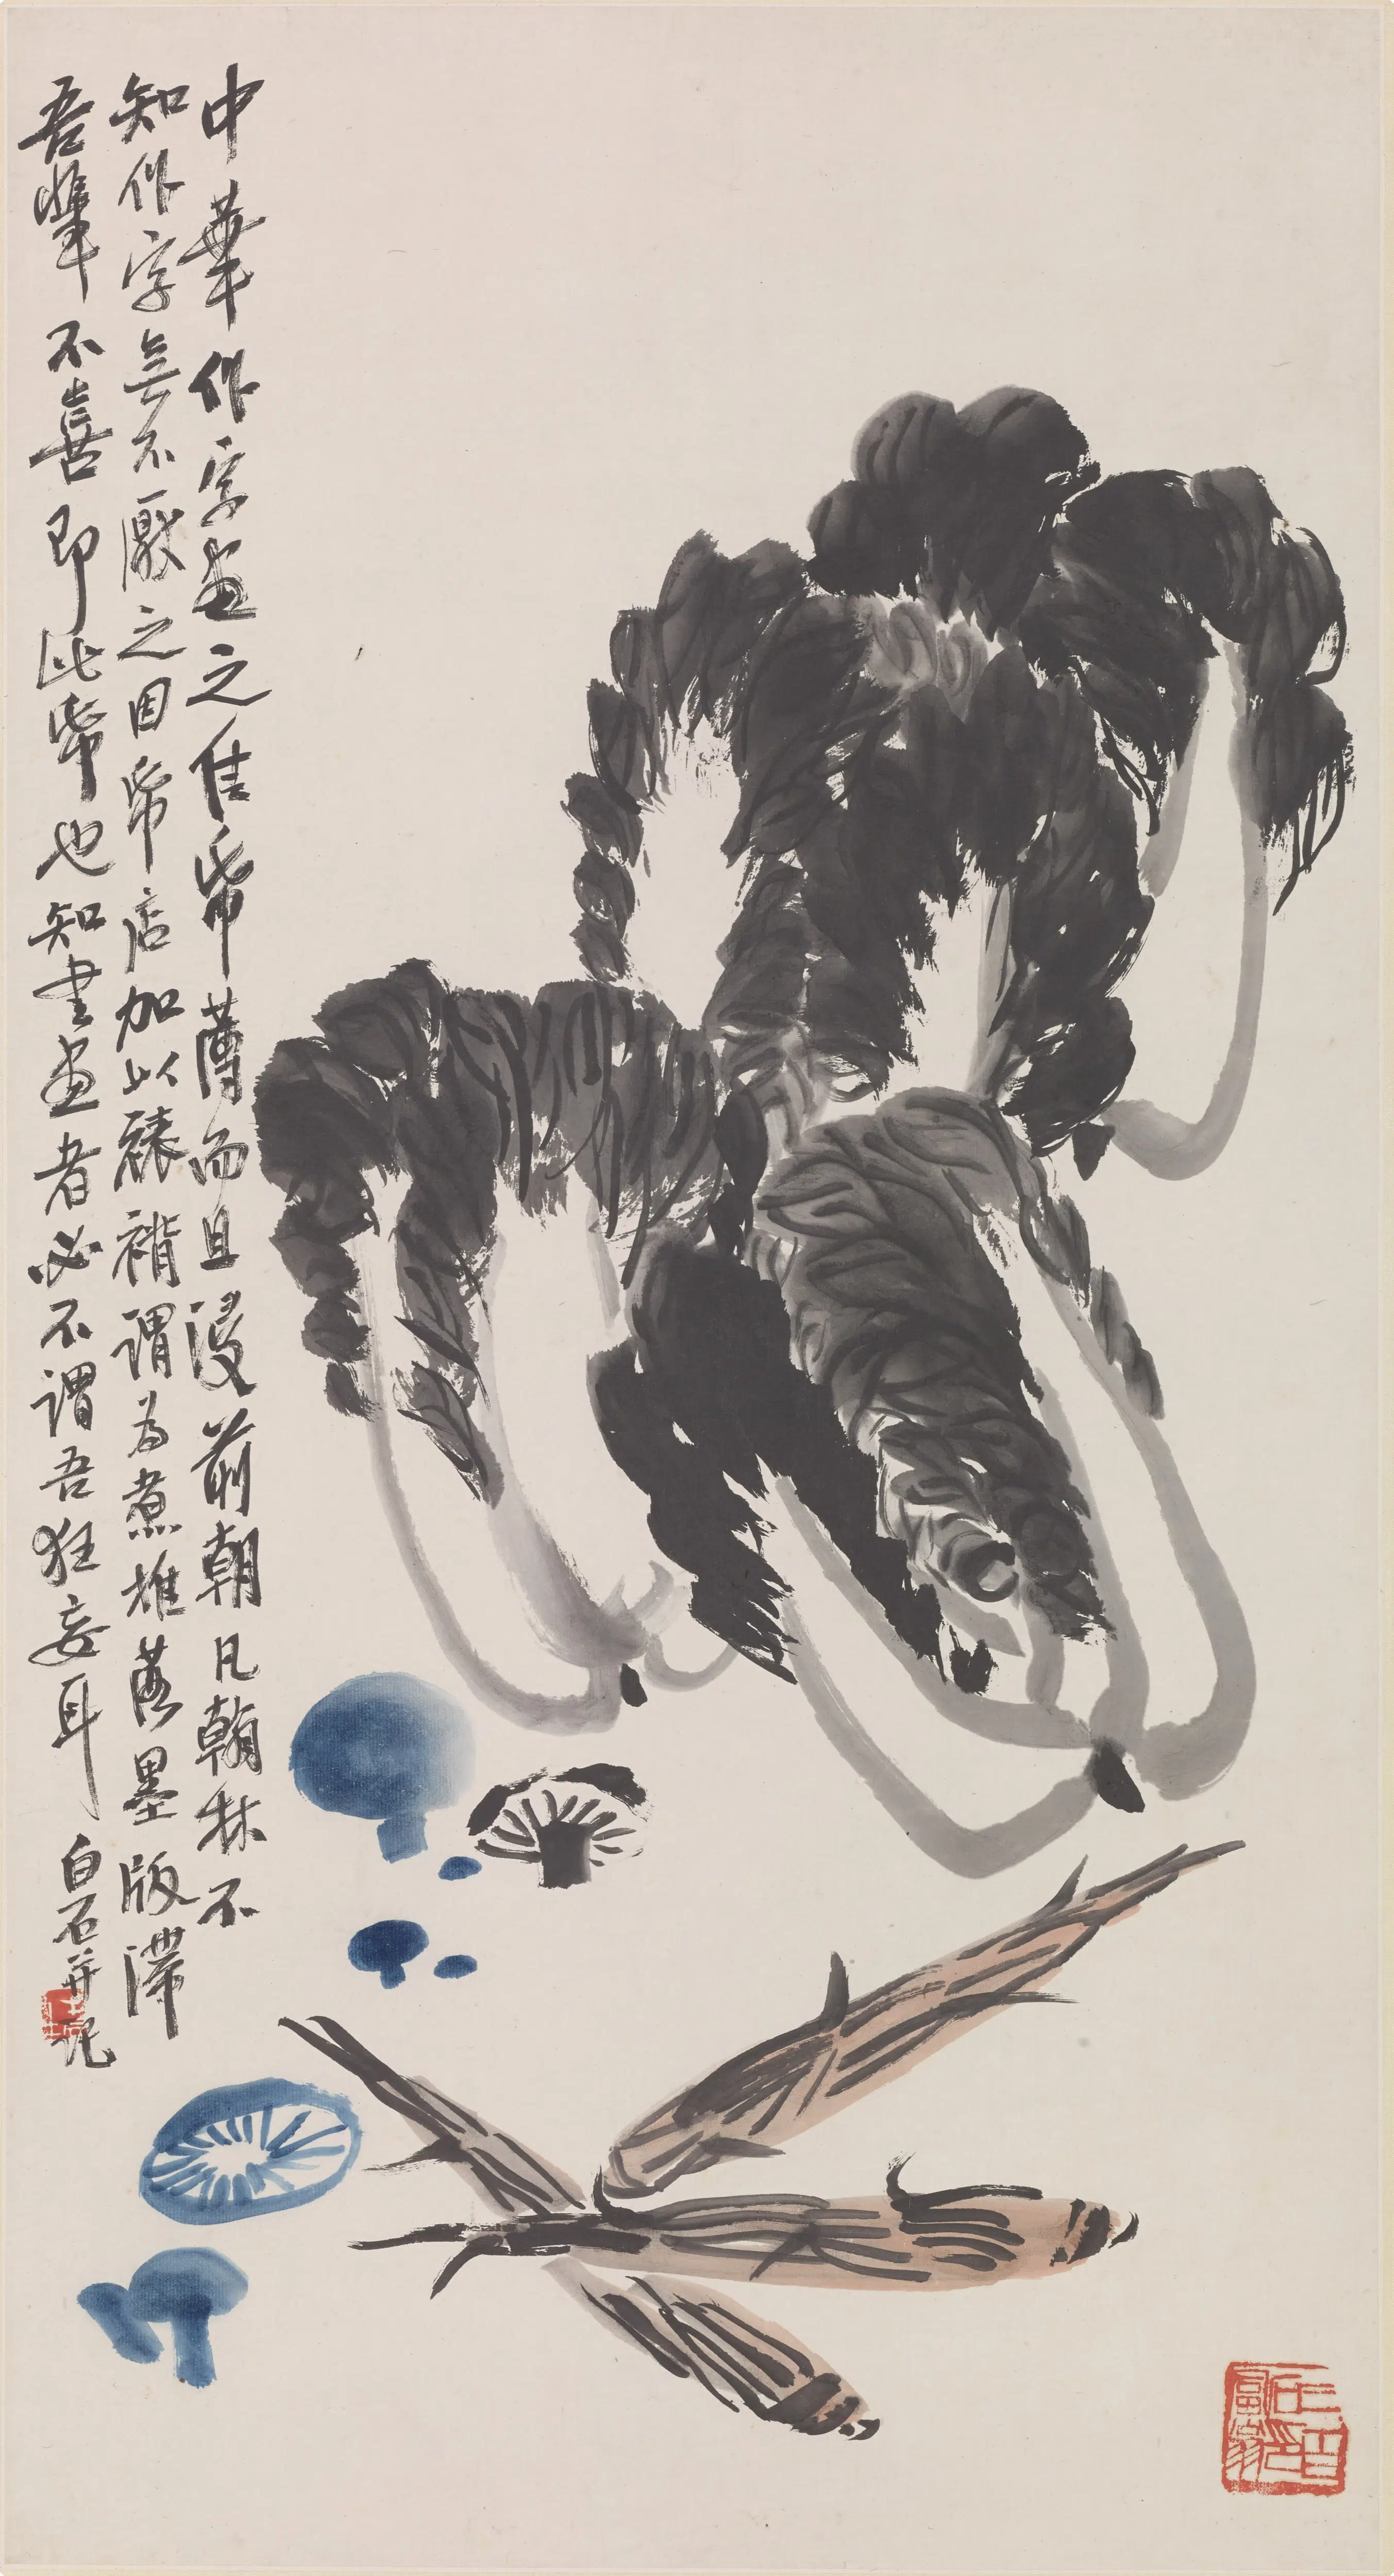 中華作字畫之佳帋薄而且浸前朝凡翰林不
知作字無不厭之因帋店加以裱褙謂為煮捶落墨版滯
吾輩不喜即此帋也知書畫者必不謂吾狂妄耳
白石并記
三百石印富翁